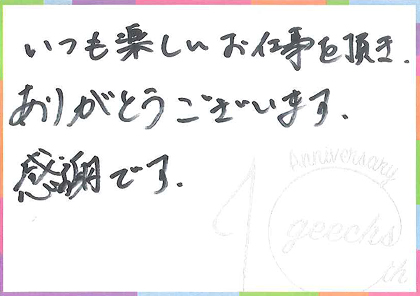 いつも楽しいお仕事を頂き.
ありがとうございます.
感謝です.
Anniversary
10
geechs
th